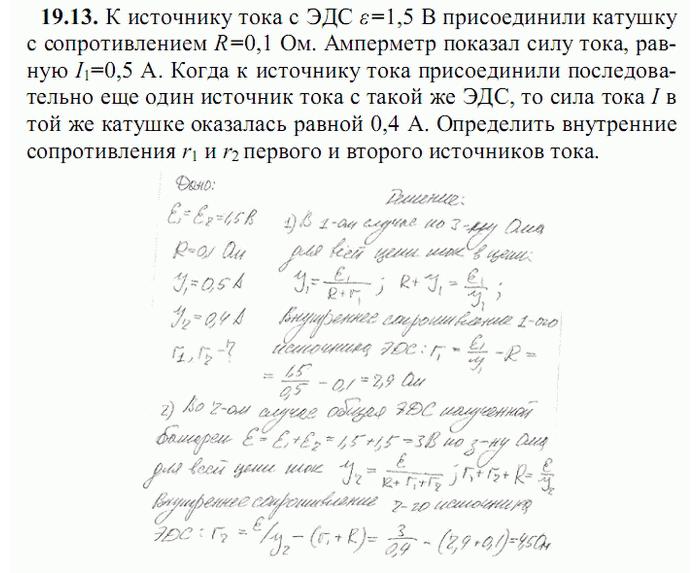 19.13. К источнику тока с ЭДС ε=1,5 В присоединили катушку
с сопротивлением R=0,1 Ом. Амперметр показал силу тока, рав-
ную I₁=0,5 А. Когда к источнику тока присоединили последова-
тельно еще один источник тока с такой же ЭДС, то сила тока I в
той же катушке оказалась равной 0,4 А. Определить внутренние
сопротивления r₁ и r₂ первого и второго источников тока.
Дано:
ℰ₁=ℰ₂=1,5 В
R=0,1 Ом
У₁=0,5 А
У₂=0,4 А
r₁, r₂ -?
Решение:
1) В 1-ом случае по з-ну Ома
для всей цепи ток в цепи:
У₁ = ℰ₁/(R+r₁) ; R+У₁ = ℰ₁/У₁ ;
Внутреннее сопротивление 1-ого
источника ЭДС: r₁ = ℰ₁/У₁ - R =
= 1,5/0,5 - 0,1 = 2,9 Ом
2) Во 2-ом случае общая ЭДС полученной
батареи ℰ = ℰ₁+ℰ₂ = 1,5+1,5 = 3В по з-ну Ома
для всей цепи ток У₂ = ℰ/(R+r₁+r₂) ; r₁+r₂+R = ℰ/У₂
Внутреннее сопротивление 2-го источника
ЭДС: r₂ = ℰ/У₂ - (r₁+R) = 3/0,4 - (2,9+0,1) = 4,5 Ом